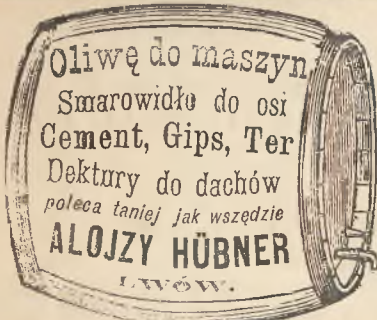 Oliwę do maszyn
Smarowidło do osi
Cement, Gips, Ter
Dektury do dachów
poleca taniej jak wszędzie
ALOJZY HÜBNER
LWÓW.